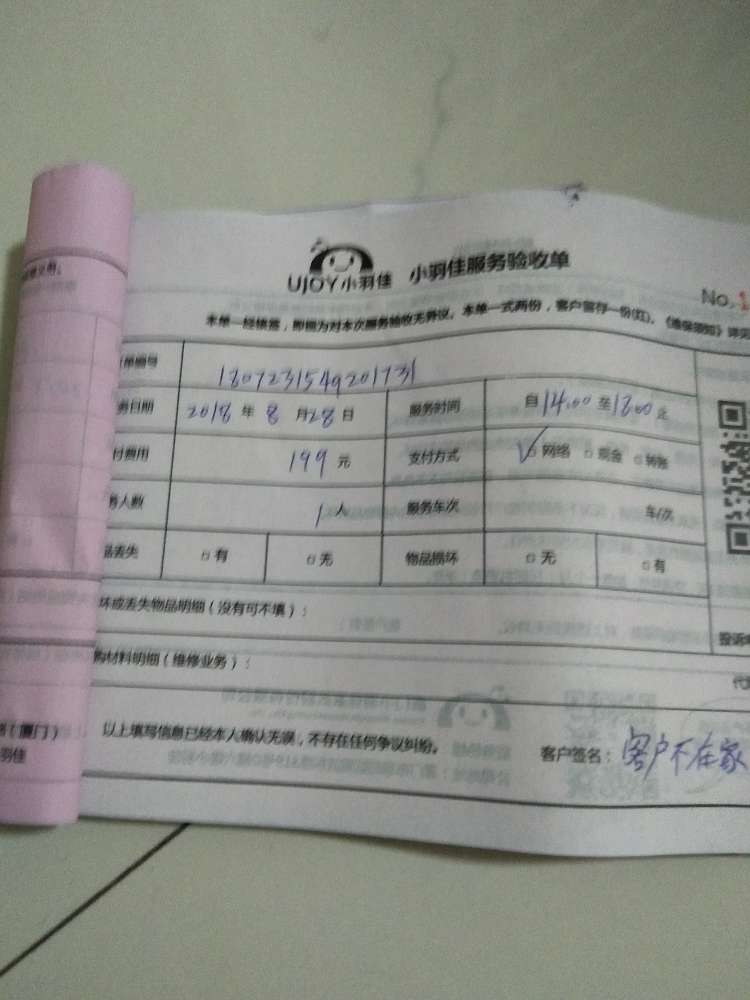 UJOY小羽佳 小羽佳服务验收单
No.1
本单一经接签，即视为对本次服务验收无异议。本单一式两份，客户留存一份(红)。《维保须知》详见
单编号 1807231549201731
务日期 2018 年 8 月 28 日 服务时间 自 14.00 至 1800 止
付费用 199 元 支付方式 ✓ 网络 □ 现金 □ 转账
务人数 1 人 服务车次 车/次
品丢失 □ 有 □ 无 物品损坏 □ 无 □ 有
坏或丢失物品明细（没有可不填）：
投诉电
购材料明细（维修业务）：
以上填写信息已经本人确认无误，不存在任何争议纠纷。
客户签名：客户不在家
（厦门）
羽佳